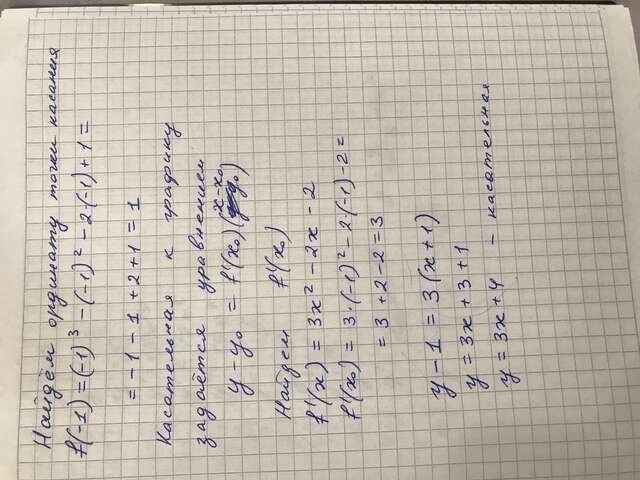 Найдём ординату точки касания
f(-1) = (-1)³ - (-1)² - 2·(-1) + 1 =
= -1 - 1 + 2 + 1 = 1
Касательная к графику
задаётся уравнением
y - y₀ = f'(x₀)(x-x₀)
Найдем f'(x₀)
f'(x) = 3x² - 2x - 2
f'(x₀) = 3·(-1)² - 2·(-1) - 2 =
= 3 + 2 - 2 = 3
y - 1 = 3(x + 1)
y = 3x + 3 + 1
y = 3x + 4 - касательная